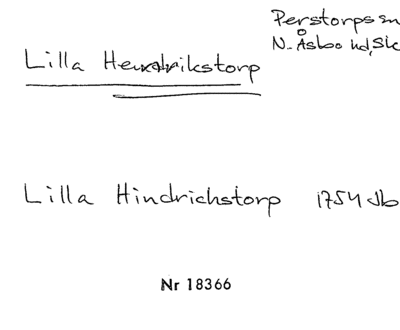 Perstorps sn
N. Åsbo hd, Sk
Lilla Hendrikstorp
Lilla Hindrichstorp 1754 Jb
Nr 18366